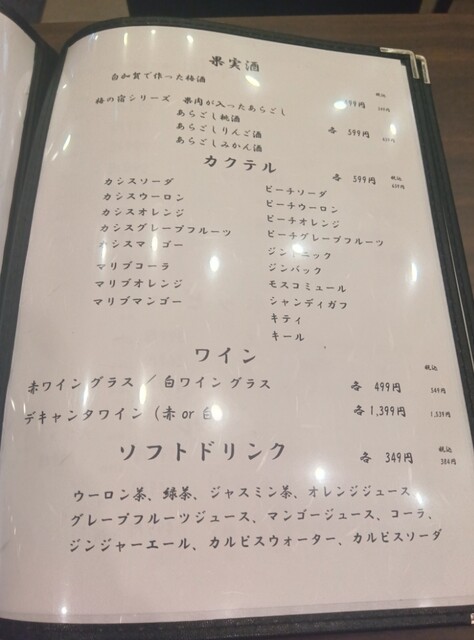 果実酒
白加賀で作った梅酒 499円 税込
梅の宿シリーズ 果肉が入ったあらごし
あらごし桃酒 各 599円
あらごしりんご酒
あらごしみかん酒
カクテル
各 599円 税込
カシスソーダ
カシスウーロン
カシスオレンジ
カシスグレープフルーツ
カシスマンゴー
マリブコーラ
マリブオレンジ
マリブマンゴー
ピーチソーダ
ピーチウーロン
ピーチオレンジ
ピーチグレープフルーツ
ジントニック
ジンバック
モスコミュール
シャンディガフ
キティ
キール
ワイン
税込
赤ワイン グラス / 白ワイン グラス 各 499円 549円
デキャンタワイン (赤 or 白 各 1,399円 1,539円
ソフトドリンク 各 349円 税込 384円
ウーロン茶、緑茶、ジャスミン茶、オレンジジュース
グレープフルーツジュース、マンゴージュース、コーラ、
ジンジャーエール、カルピスウォーター、カルピスソーダ